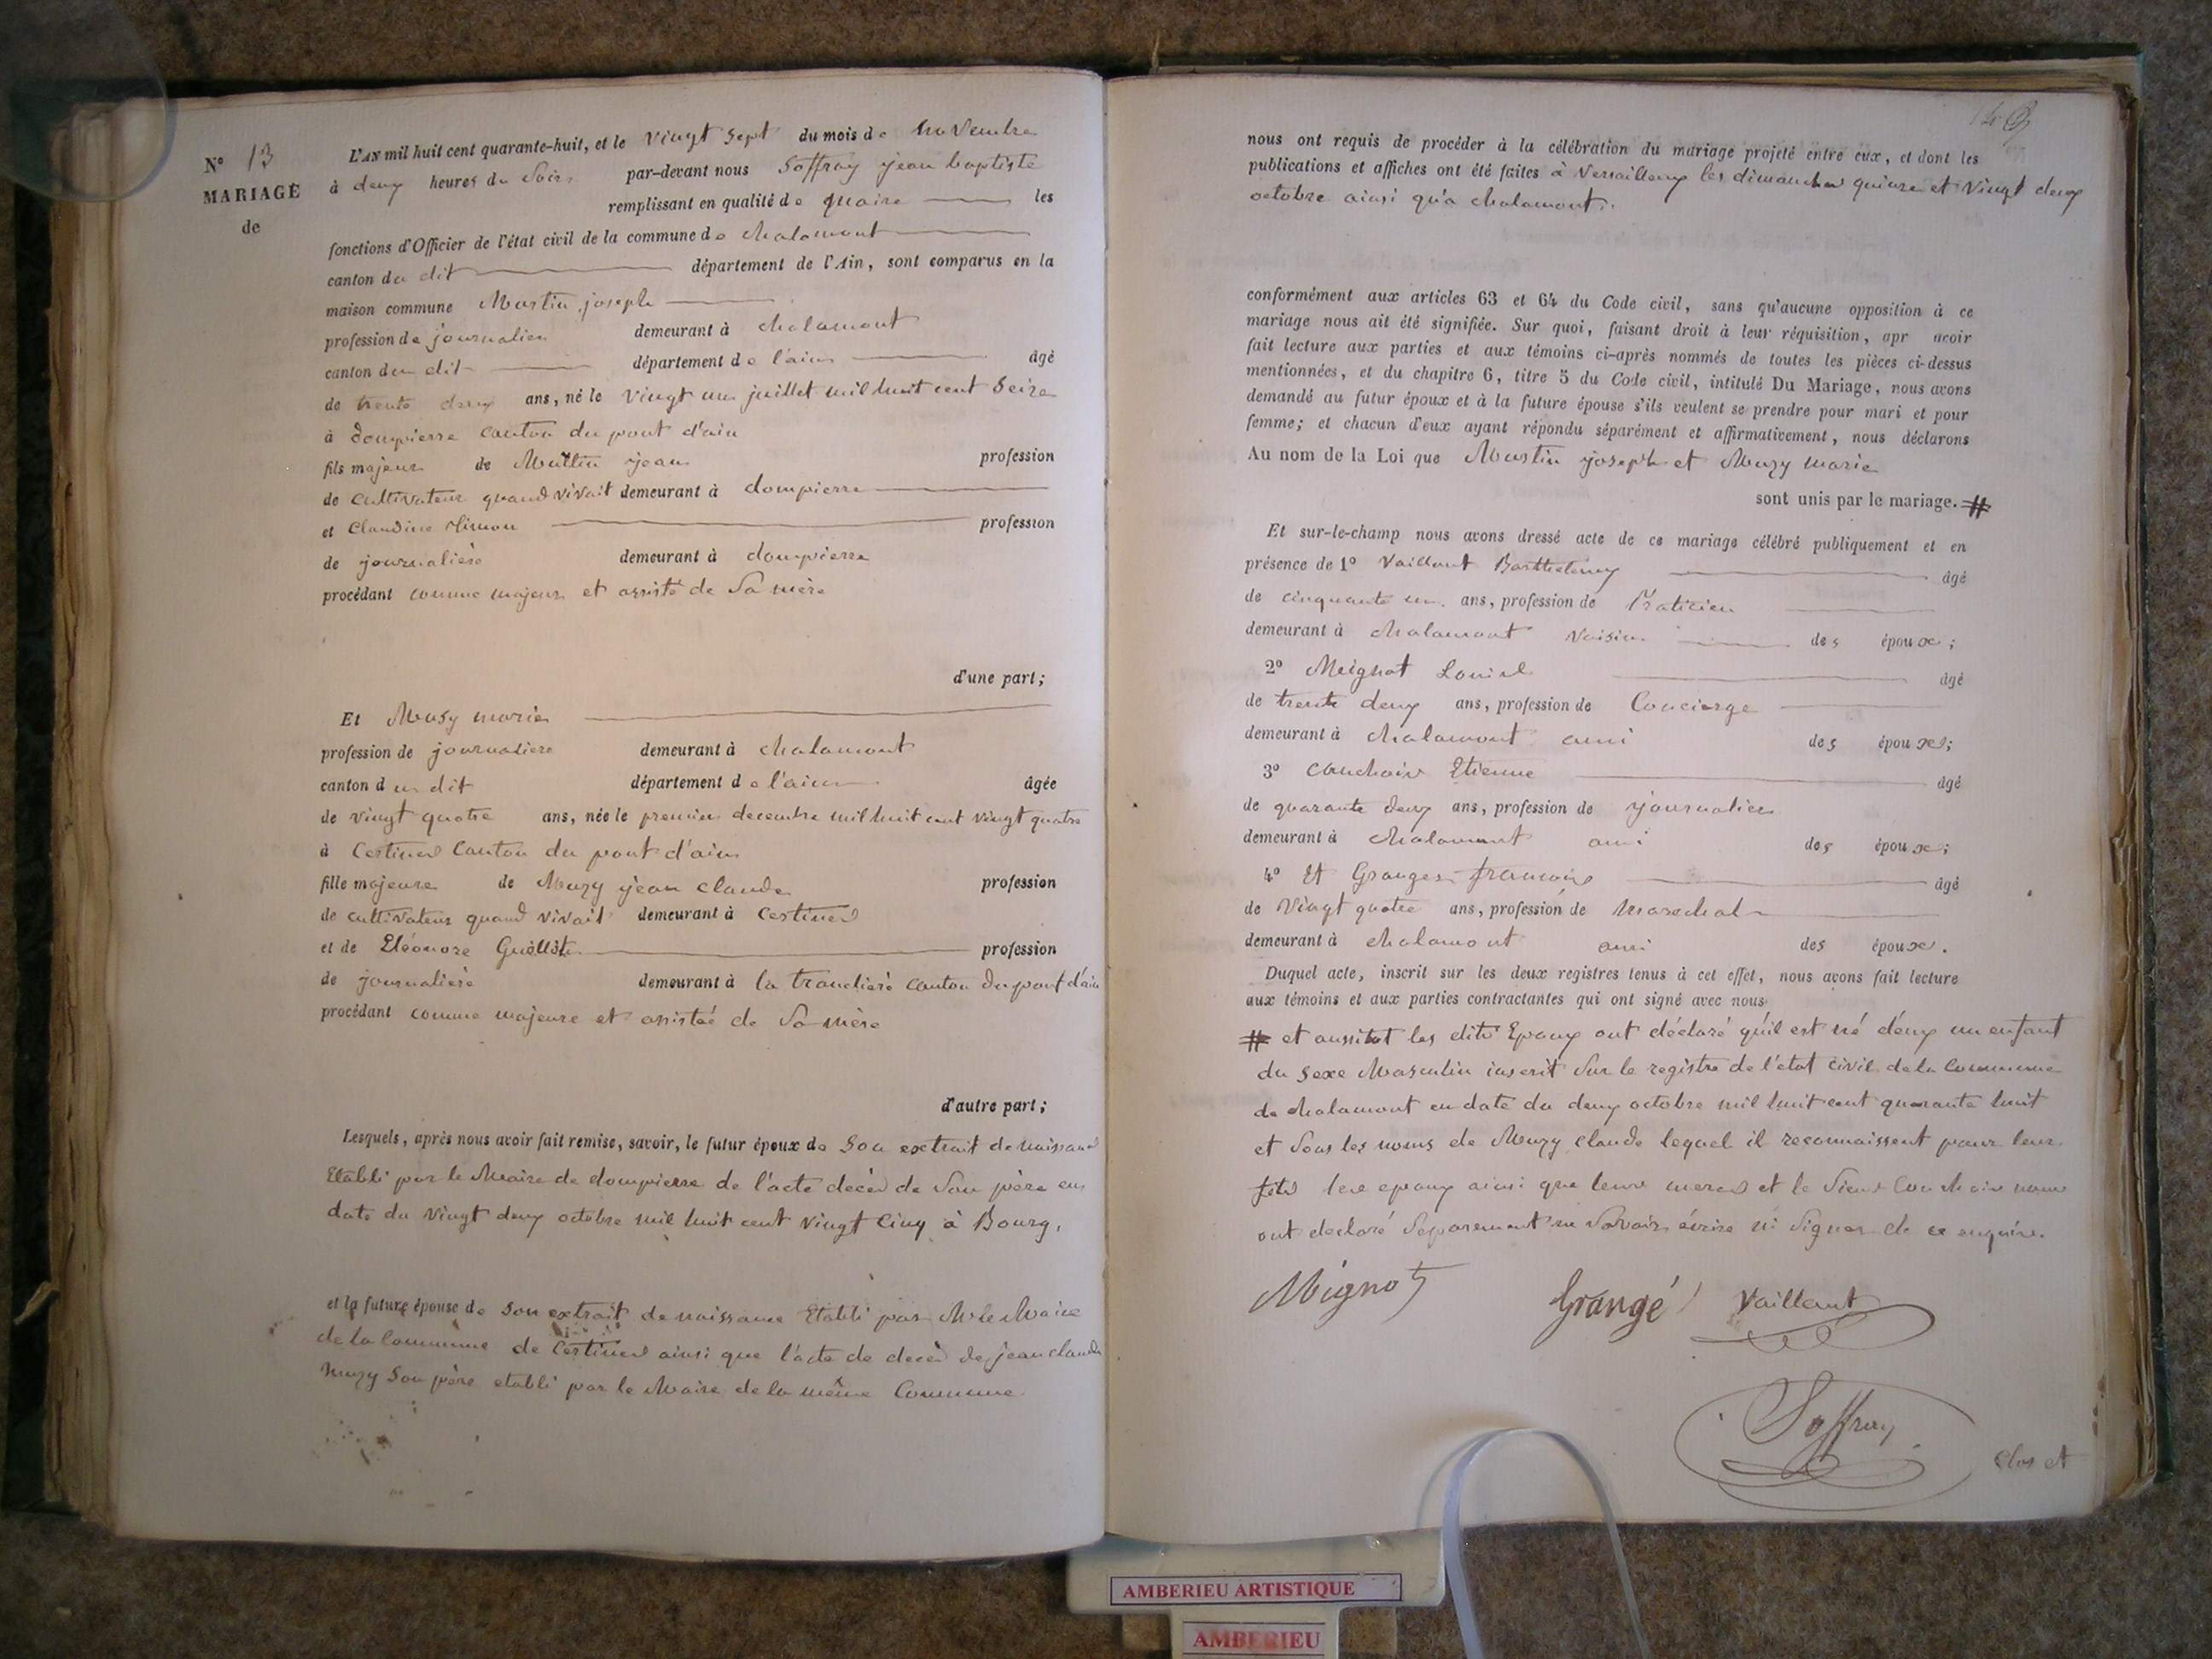 N° 13
MARIAGE
de
L'AN mil huit cent quarante-huit, et le vingt sept du mois de novembre
à deux heures du Soir par-devant nous Soffray jean baptiste
remplissant en qualité de maire les
fonctions d'Officier de l'état civil de la commune de chalamont
canton du dit département de l'Ain, sont comparus en la
maison commune Martin joseph
profession de journalier demeurant à chalamont
canton du dit département de l'ain âgé
de trente deux ans, né le vingt un juillet mil huit cent Seize
à dompierre canton du pont d'ain
fils majeur de Martin jean profession
de cultivateur quand vivait demeurant à dompierre
et Claudine profession
de journalière demeurant à dompierre
procédant comme majeur et assisté de Sa mère
d'une part;
Et Muzy marie
profession de journaliere demeurant à chalamont
canton du dit département de l'ain âgée
de vingt quatre ans, née le premier decembre mil huit cent vingt quatre
à Certines Canton du pont d'ain
fille majeure de Muzy jean claude profession
de cultivateur quand vivait demeurant à Certines
et de Eléonore profession
de journalière demeurant à la tranclière canton du pont d'ain
procédant comme majeure et assistée de Sa mère
d'autre part;
Lesquels, après nous avoir fait remise, savoir, le futur époux de Son extrait de naissance
Etabli par le Maire de dompierre de l'acte decès de Son père en
date du vingt deux octobre mil huit cent vingt cinq à Bourg,
et la future épouse de Son extrait de naissance Etabli par M le Maire
de la Commune de Certines ainsi que l'acte de decès de jean claude
muzy Son père etabli par le Maire de la même Commune
nous ont requis de procéder à la célébration du mariage projeté entre eux, et dont les
publications et affiches ont été faites à Versailleux les dimanches quinze et vingt deux
octobre ainsi qu'à chalamont.
conformément aux articles 63 et 64 du Code civil, sans qu'aucune opposition à ce
mariage nous ait été signifiée. Sur quoi, faisant droit à leur réquisition, apr avoir
fait lecture aux parties et aux témoins ci-après nommés de toutes les pièces ci-dessus
mentionnées, et du chapitre 6, titre 5 du Code civil, intitulé Du Mariage, nous avons
demandé au futur époux et à la future épouse s'ils veulent se prendre pour mari et pour
femme; et chacun d'eux ayant répondu séparément et affirmativement, nous déclarons
Au nom de la Loi que Martin joseph et Muzy marie
sont unis par le mariage. #
Et sur-le-champ nous avons dressé acte de ce mariage célébré publiquement et en
présence de 1° Vaillant Barthelemy âgé
de cinquante un ans, profession de Praticien
demeurant à chalamont voisin des époux;
2° Meignot Louis âgé
de trente deux ans, profession de Concierge
demeurant à chalamont ami des époux;
3° Couchoix Etienne âgé
de quarante deux ans, profession de journalier
demeurant à chalamont ami des époux;
4° Et Granger francois âgé
de vingt quatre ans, profession de marechal
demeurant à chalamont ami des époux.
Duquel acte, inscrit sur les deux registres tenus à cet effet, nous avons fait lecture
aux témoins et aux parties contractantes qui ont signé avec nous
# et aussitot les dits Epoux ont déclaré qu'il est né d'eux un enfant
du Sexe Masculin inscrit Sur le registre de l'état civil de la Commune
de chalamont en date du deux octobre mil huit cent quarante huit
et Sous les noms de Muzy claude lequel il reconnaissent pour leur
fils les epoux ainsi que leurs meres et le Sieur Couchoix nous
ont declaré Separement ne Savoir écrire ni Signer de ce enquis.
Mignot Grangé Vaillant
Soffray
Clos et
AMBERIEU ARTISTIQUE
AMBERIEU